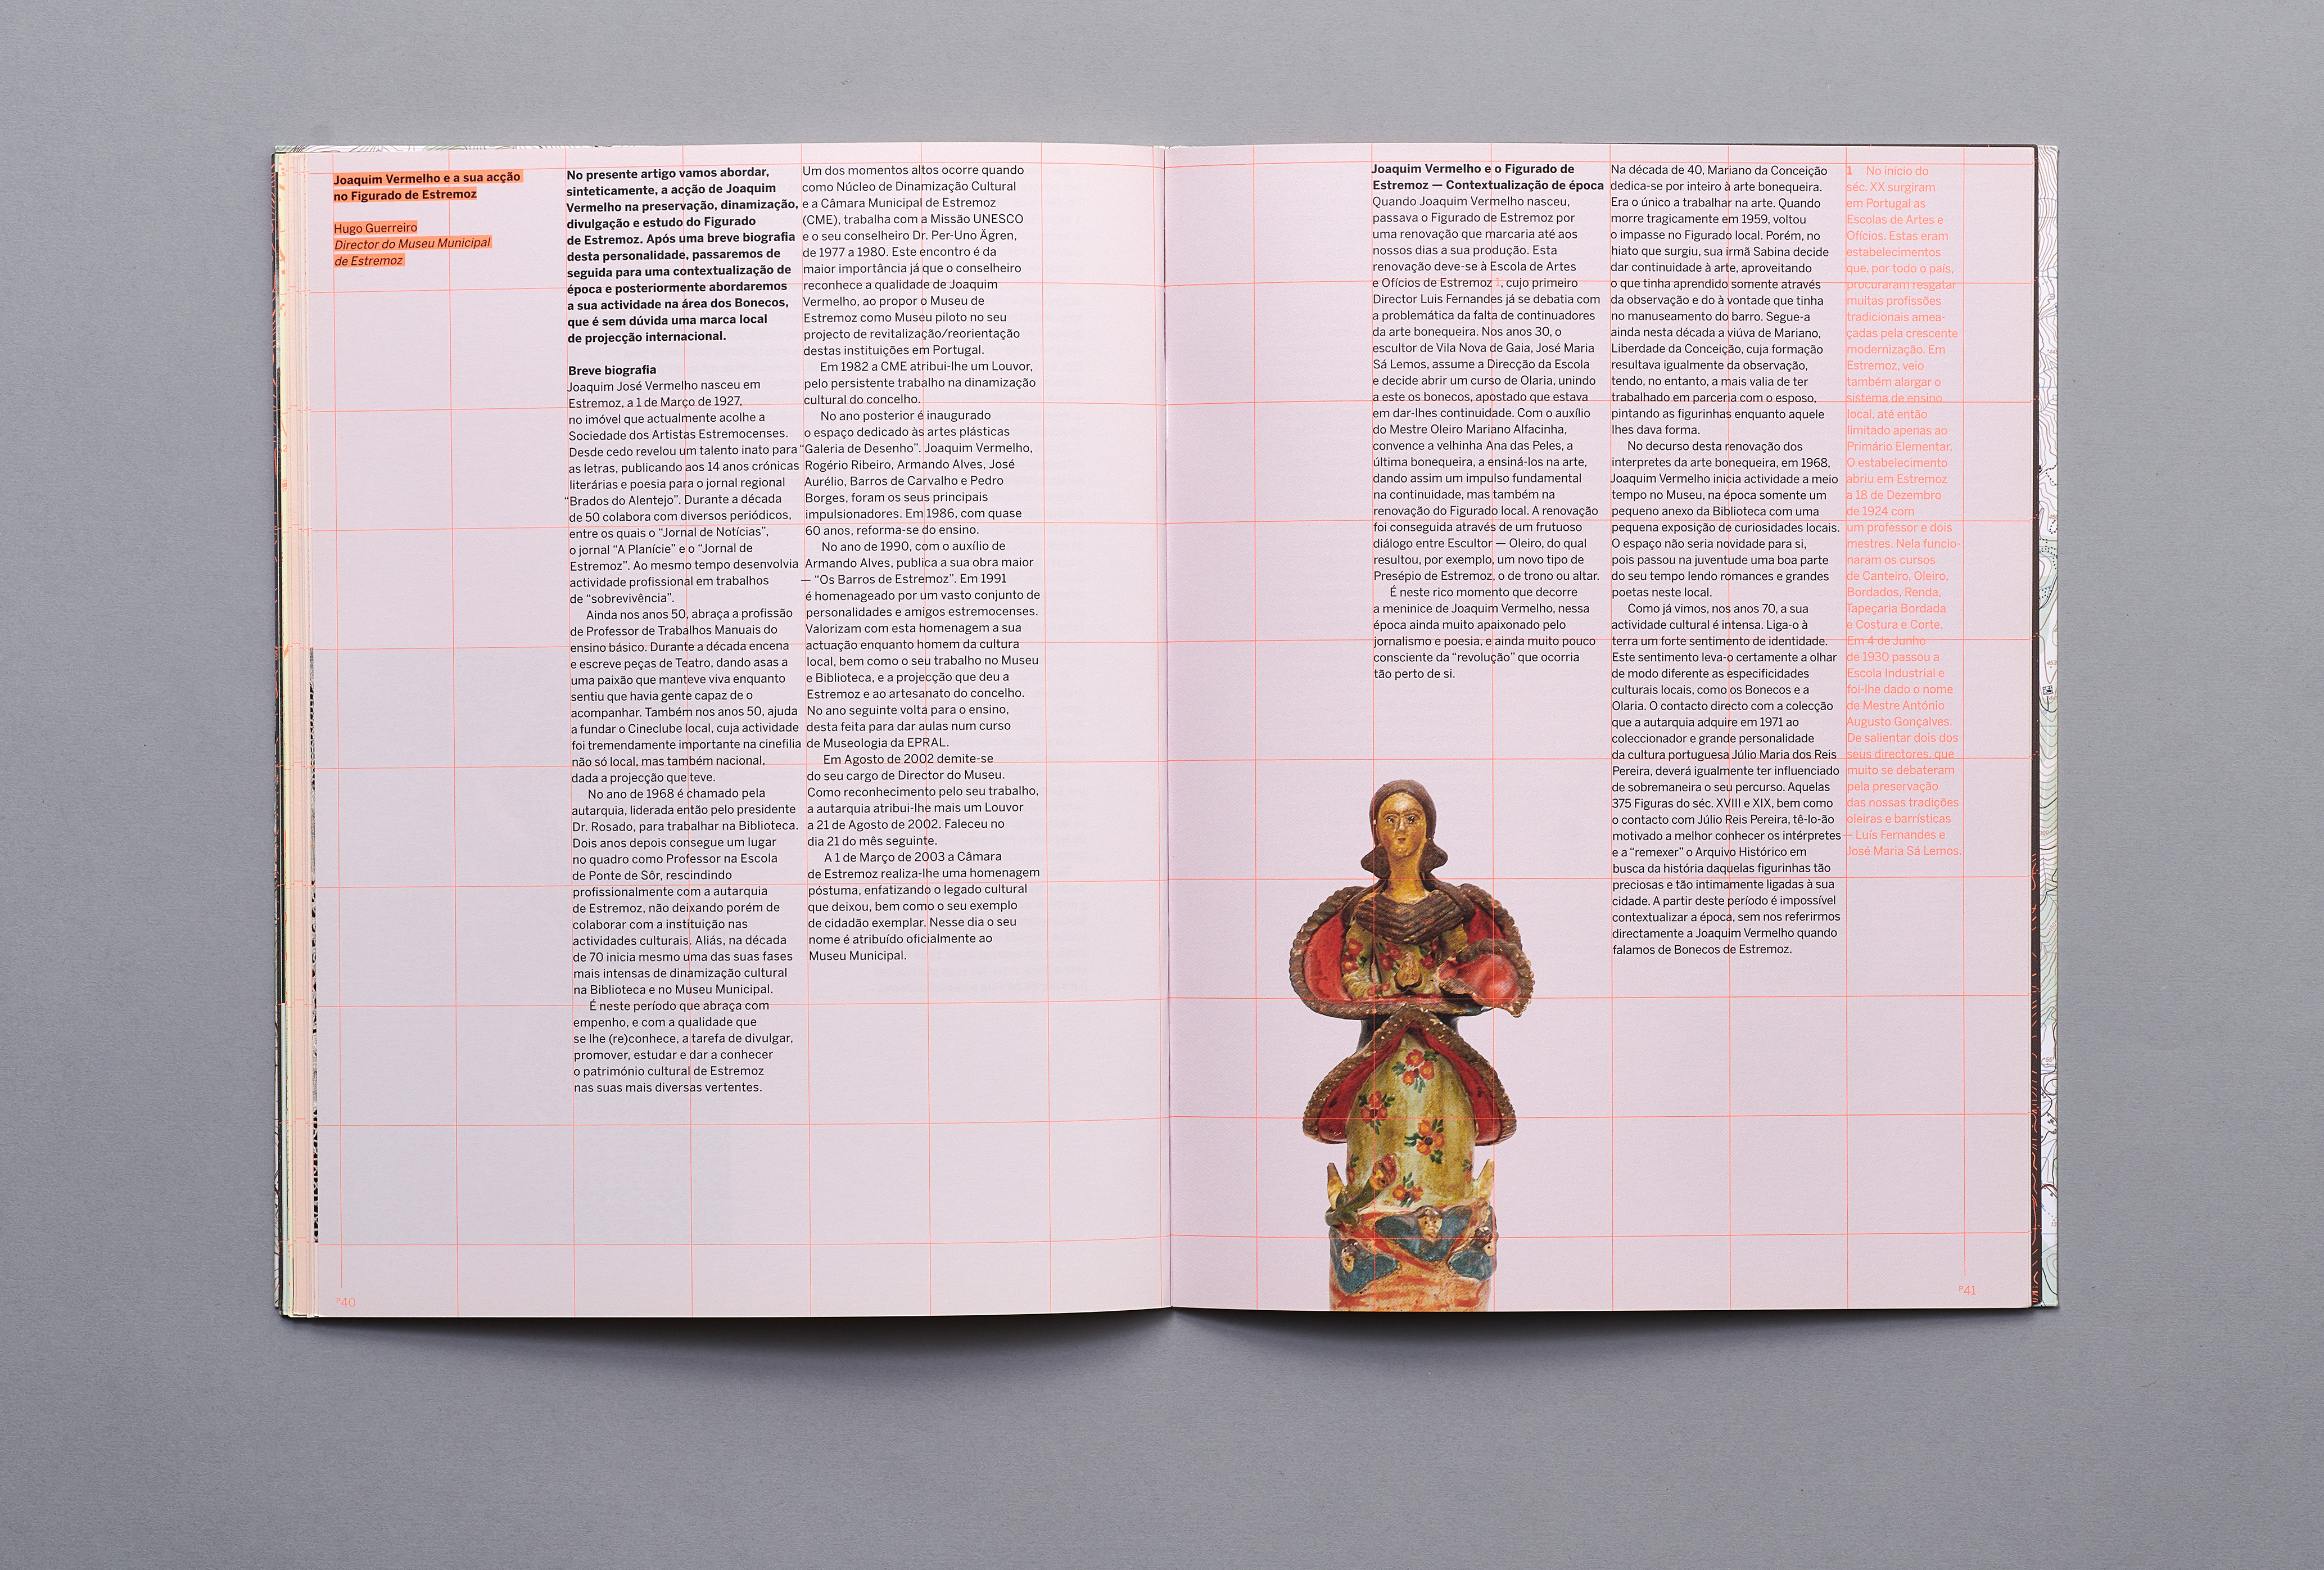 Joaquim Vermelho e a sua acção
no Figurado de Estremoz
Hugo Guerreiro
Director do Museu Municipal
de Estremoz
No presente artigo vamos abordar,
sinteticamente, a acção de Joaquim
Vermelho na preservação, dinamização,
divulgação e estudo do Figurado
de Estremoz. Após uma breve biografia
desta personalidade, passaremos de
seguida para uma contextualização de
época e posteriormente abordaremos
a sua actividade na área dos Bonecos,
que é sem dúvida uma marca local
de projecção internacional.
Breve biografia
Joaquim José Vermelho nasceu em
Estremoz, a 1 de Março de 1927,
no imóvel que actualmente acolhe a
Sociedade dos Artistas Estremocenses.
Desde cedo revelou um talento inato para
as letras, publicando aos 14 anos crónicas
literárias e poesia para o jornal regional
“Brados do Alentejo”. Durante a década
de 50 colabora com diversos periódicos,
entre os quais o “Jornal de Notícias”,
o jornal “A Planície” e o “Jornal de
Estremoz”. Ao mesmo tempo desenvolvia
actividade profissional em trabalhos
de “sobrevivência”.
Ainda nos anos 50, abraça a profissão
de Professor de Trabalhos Manuais do
ensino básico. Durante a década encena
e escreve peças de Teatro, dando asas a
uma paixão que manteve viva enquanto
sentiu que havia gente capaz de o
acompanhar. Também nos anos 50, ajuda
a fundar o Cineclube local, cuja actividade
foi tremendamente importante na cinefilia
não só local, mas também nacional,
dada a projecção que teve.
No ano de 1968 é chamado pela
autarquia, liderada então pelo presidente
Dr. Rosado, para trabalhar na Biblioteca.
Dois anos depois consegue um lugar
no quadro como Professor na Escola
de Ponte de Sôr, rescindindo
profissionalmente com a autarquia
de Estremoz, não deixando porém de
colaborar com a instituição nas
actividades culturais. Aliás, na década
de 70 inicia mesmo uma das suas fases
mais intensas de dinamização cultural
na Biblioteca e no Museu Municipal.
É neste período que abraça com
empenho, e com a qualidade que
se lhe (re)conhece, a tarefa de divulgar,
promover, estudar e dar a conhecer
o património cultural de Estremoz
nas suas mais diversas vertentes.
Um dos momentos altos ocorre quando
como Núcleo de Dinamização Cultural
e a Câmara Municipal de Estremoz
(CME), trabalha com a Missão UNESCO
e o seu conselheiro Dr. Per-Uno Ägren,
de 1977 a 1980. Este encontro é da
maior importância já que o conselheiro
reconhece a qualidade de Joaquim
Vermelho, ao propor o Museu de
Estremoz como Museu piloto no seu
projecto de revitalização/reorientação
destas instituições em Portugal.
Em 1982 a CME atribui-lhe um Louvor,
pelo persistente trabalho na dinamização
cultural do concelho.
No ano posterior é inaugurado
o espaço dedicado às artes plásticas
“Galeria de Desenho”. Joaquim Vermelho,
Rogério Ribeiro, Armando Alves, José
Aurélio, Barros de Carvalho e Pedro
Borges, foram os seus principais
impulsionadores. Em 1986, com quase
60 anos, reforma-se do ensino.
No ano de 1990, com o auxílio de
Armando Alves, publica a sua obra maior
— “Os Barros de Estremoz”. Em 1991
é homenageado por um vasto conjunto de
personalidades e amigos estremocenses.
Valorizam com esta homenagem a sua
actuação enquanto homem da cultura
local, bem como o seu trabalho no Museu
e Biblioteca, e a projecção que deu a
Estremoz e ao artesanato do concelho.
No ano seguinte volta para o ensino,
desta feita para dar aulas num curso
de Museologia da EPRAL.
Em Agosto de 2002 demite-se
do seu cargo de Director do Museu.
Como reconhecimento pelo seu trabalho,
a autarquia atribui-lhe mais um Louvor
a 21 de Agosto de 2002. Faleceu no
dia 21 do mês seguinte.
A 1 de Março de 2003 a Câmara
de Estremoz realiza-lhe uma homenagem
póstuma, enfatizando o legado cultural
que deixou, bem como o seu exemplo
de cidadão exemplar. Nesse dia o seu
nome é atribuído oficialmente ao
Museu Municipal.
P40
Joaquim Vermelho e o Figurado de
Estremoz — Contextualização de época
Quando Joaquim Vermelho nasceu,
passava o Figurado de Estremoz por
uma renovação que marcaria até aos
nossos dias a sua produção. Esta
renovação deve-se à Escola de Artes
e Ofícios de Estremoz 1, cujo primeiro
Director Luis Fernandes já se debatia com
a problemática da falta de continuadores
da arte bonequeira. Nos anos 30, o
escultor de Vila Nova de Gaia, José Maria
Sá Lemos, assume a Direcção da Escola
e decide abrir um curso de Olaria, unindo
a este os bonecos, apostado que estava
em dar-lhes continuidade. Com o auxílio
do Mestre Oleiro Mariano Alfacinha,
convence a velhinha Ana das Peles, a
última bonequeira, a ensiná-los na arte,
dando assim um impulso fundamental
na continuidade, mas também na
renovação do Figurado local. A renovação
foi conseguida através de um frutuoso
diálogo entre Escultor — Oleiro, do qual
resultou, por exemplo, um novo tipo de
Presépio de Estremoz, o de trono ou altar.
É neste rico momento que decorre
a meninice de Joaquim Vermelho, nessa
época ainda muito apaixonado pelo
jornalismo e poesia, e ainda muito pouco
consciente da “revolução” que ocorria
tão perto de si.
Na década de 40, Mariano da Conceição
dedica-se por inteiro à arte bonequeira.
Era o único a trabalhar na arte. Quando
morre tragicamente em 1959, voltou
o impasse no Figurado local. Porém, no
hiato que surgiu, sua irmã Sabina decide
dar continuidade à arte, aproveitando
o que tinha aprendido somente através
da observação e do à vontade que tinha
no manuseamento do barro. Segue-a
ainda nesta década a viúva de Mariano,
Liberdade da Conceição, cuja formação
resultava igualmente da observação,
tendo, no entanto, a mais valia de ter
trabalhado em parceria com o esposo,
pintando as figurinhas enquanto aquele
lhes dava forma.
No decurso desta renovação dos
interpretes da arte bonequeira, em 1968,
Joaquim Vermelho inicia actividade a meio
tempo no Museu, na época somente um
pequeno anexo da Biblioteca com uma
pequena exposição de curiosidades locais.
O espaço não seria novidade para si,
pois passou na juventude uma boa parte
do seu tempo lendo romances e grandes
poetas neste local.
Como já vimos, nos anos 70, a sua
actividade cultural é intensa. Liga-o à
terra um forte sentimento de identidade.
Este sentimento leva-o certamente a olhar
de modo diferente as especificidades
culturais locais, como os Bonecos e a
Olaria. O contacto directo com a colecção
que a autarquia adquire em 1971 ao
coleccionador e grande personalidade
da cultura portuguesa Júlio Maria dos Reis
Pereira, deverá igualmente ter influenciado
de sobremaneira o seu percurso. Aquelas
375 Figuras do séc. XVIII e XIX, bem como
o contacto com Júlio Reis Pereira, tê-lo-ão
motivado a melhor conhecer os intérpretes
e a “remexer” o Arquivo Histórico em
busca da história daquelas figurinhas tão
preciosas e tão intimamente ligadas à sua
cidade. A partir deste período é impossível
contextualizar a época, sem nos referirmos
directamente a Joaquim Vermelho quando
falamos de Bonecos de Estremoz.
1 No início do
séc. XX surgiram
em Portugal as
Escolas de Artes e
Ofícios. Estas eram
estabelecimentos
que, por todo o país,
procuraram resgatar
muitas profissões
tradicionais amea-
çadas pela crescente
modernização. Em
Estremoz, veio
também alargar o
sistema de ensino
local, até então
limitado apenas ao
Primário Elementar.
O estabelecimento
abriu em Estremoz
a 18 de Dezembro
de 1924 com
um professor e dois
mestres. Nela funcio-
naram os cursos
de Canteiro, Oleiro,
Bordados, Renda,
Tapeçaria Bordada
e Costura e Corte.
Em 4 de Junho
de 1930 passou a
Escola Industrial e
foi-lhe dado o nome
de Mestre António
Augusto Gonçalves.
De salientar dois dos
seus directores, que
muito se debateram
pela preservação
das nossas tradições
oleiras e barrísticas
— Luís Fernandes e
José Maria Sá Lemos.
P41